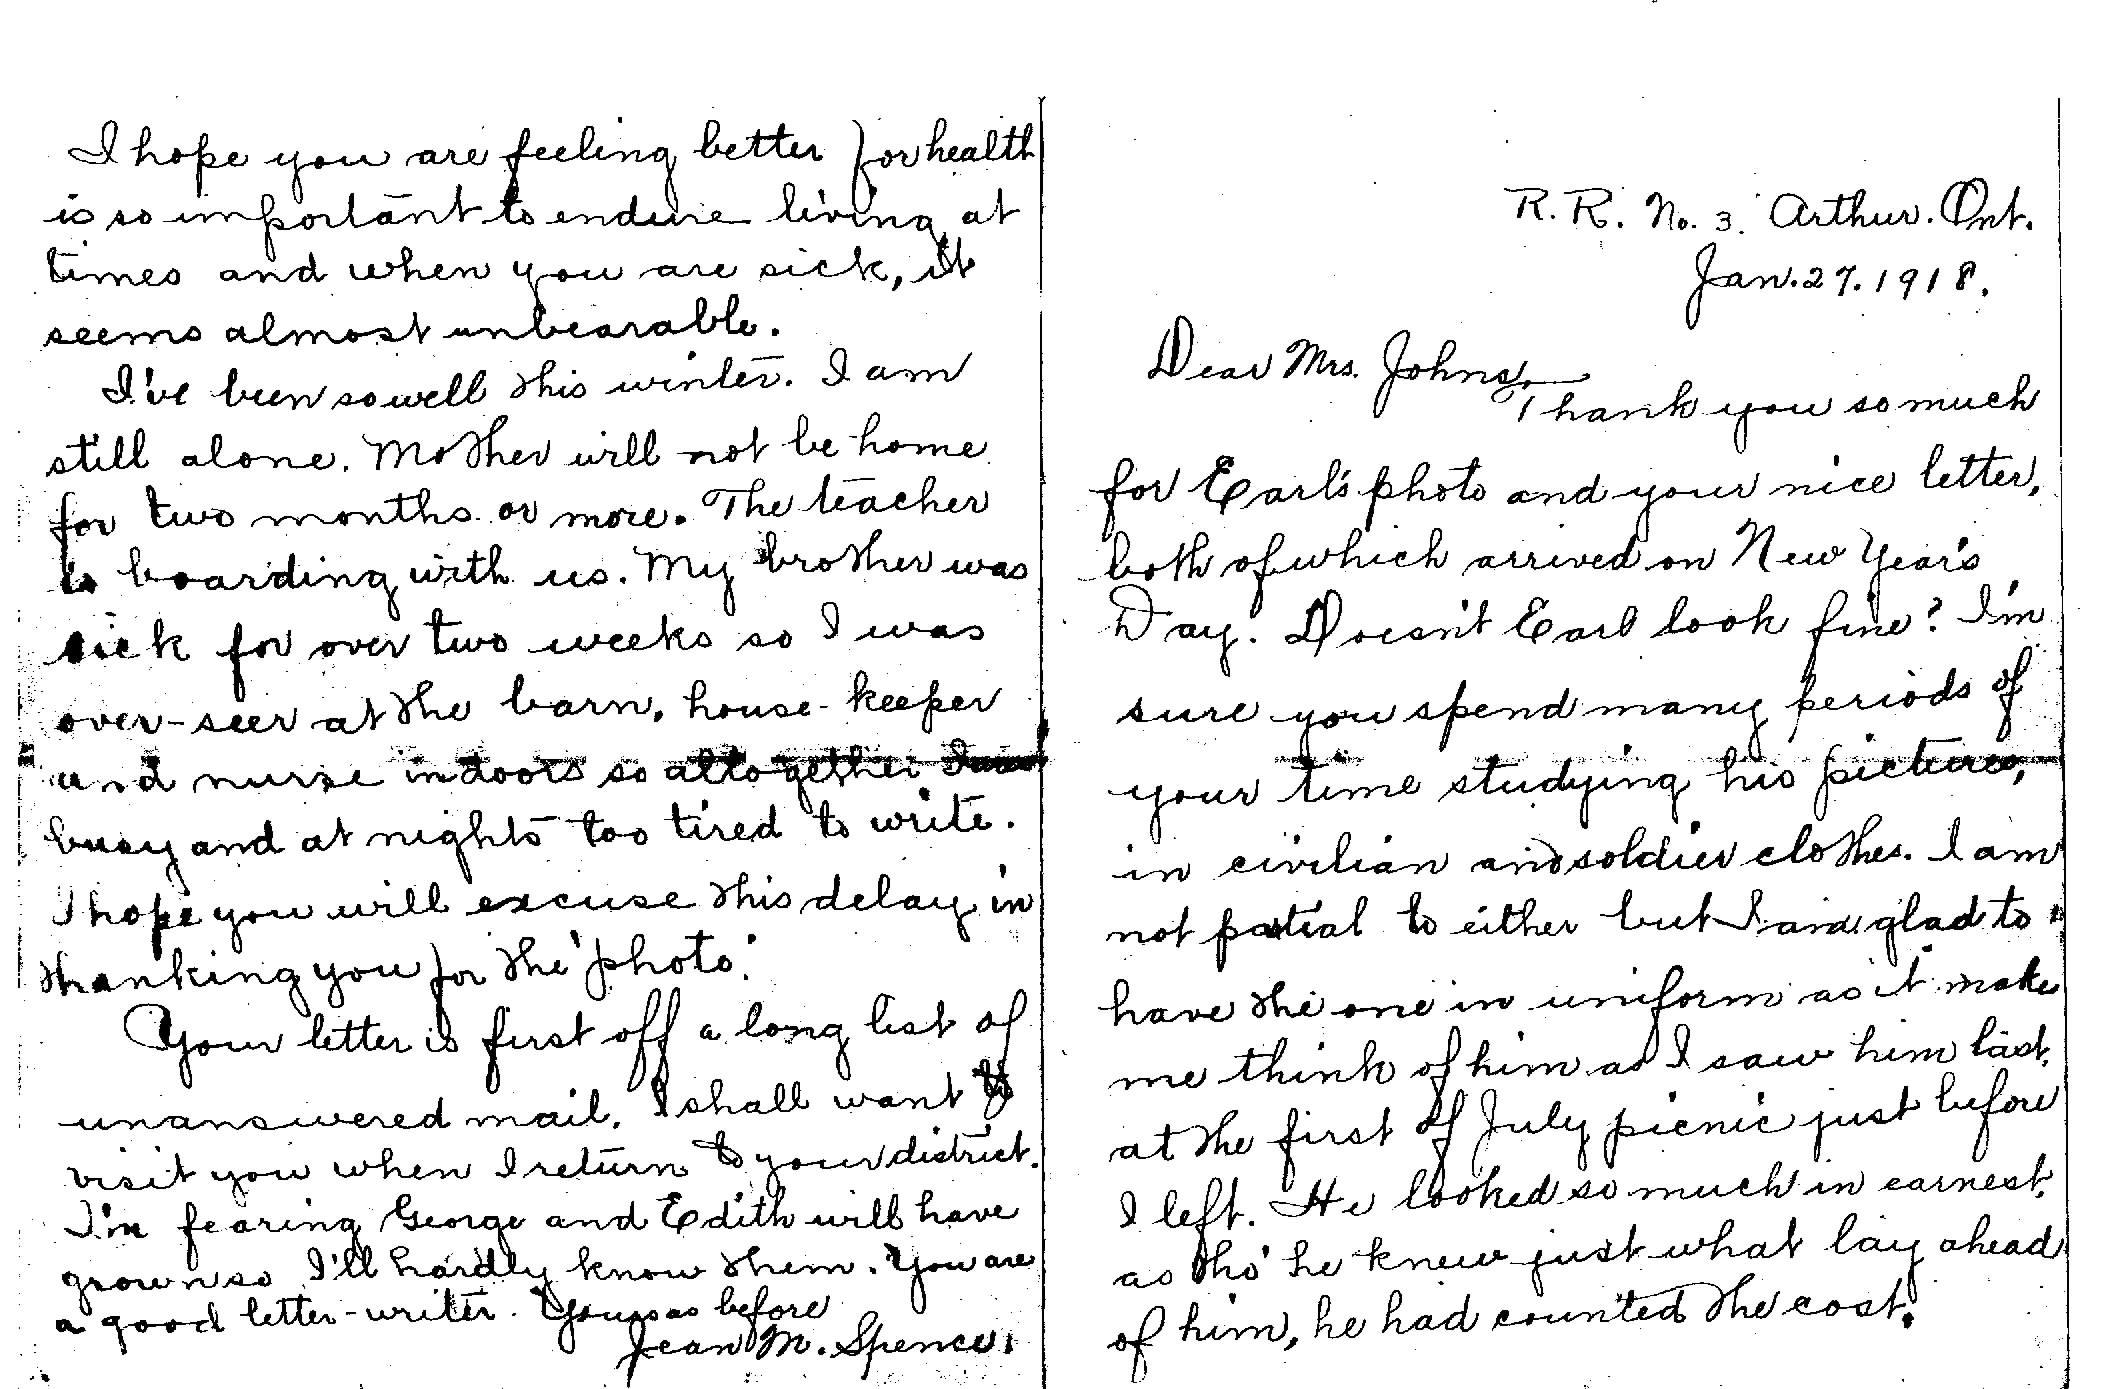 R. R. No. 3. Arthur. Ont.
Jan. 27. 1918.
Dear Mrs. Johns,
Thank you so much
for Earl's photo and your nice letter,
both of which arrived on New Year's
Day. Doesn't Earl look fine? I'm
sure you spend many periods of
your time studying his pictures,
in civilian and soldier clothes. I am
not partial to either but I am glad to
have the one in uniform as it make
me think of him as I saw him last,
at the first of July picnic just before
I left. He looked so much in earnest,
as tho' he knew just what lay ahead
of him, he had counted the cost.
I hope you are feeling better for health
is so important to endure living at
times and when you are sick, it
seems almost unbearable.
I've been so well this winter. I am
still alone. Mother will not be home
for two months or more. The teacher
is boarding with us. My brother was
sick for over two weeks so I was
over-seer at the barn, house-keeper
and nurse indoors so altogether I was
busy and at nights too tired to write.
I hope you will excuse this delay in
thanking you for the photo.
Your letter is first off a long list of
unanswered mail. I shall want to
visit you when I return to your district.
I'm fearing George and Edith will have
grown so I'll hardly know them. You are
a good letter-writer. Yours as before
Jean M. Spence.